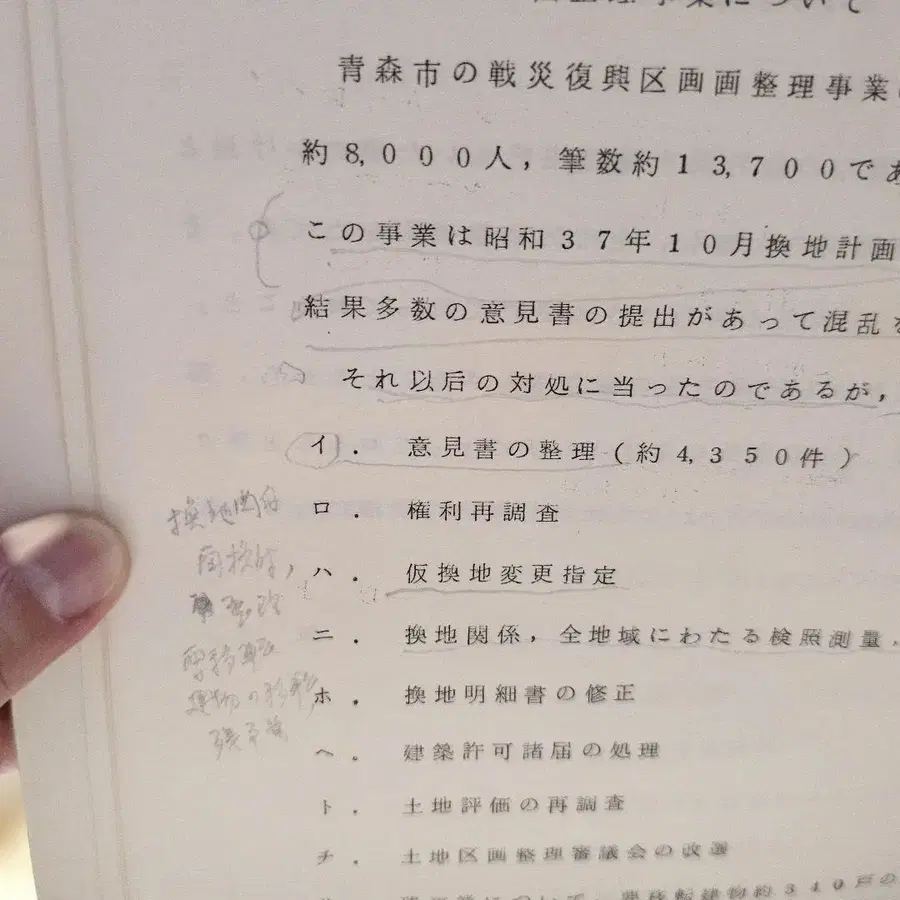 理事業について
青森市の戦災復興区画画整理事業
約8,000人，筆数約13,700であ
この事業は昭和37年10月換地計画
結果多数の意見書の提出があって混乱
それ以后の対処に当ったのであるが，
イ．意見書の整理（約4,350件）
ロ．権利再調査
ハ．仮換地変更指定
ニ．換地関係，全地域にわたる検照測量．
ホ．換地明細書の修正
ヘ．建築許可諸届の処理
ト．土地評価の再調査
チ．土地区画整理審議会の改選